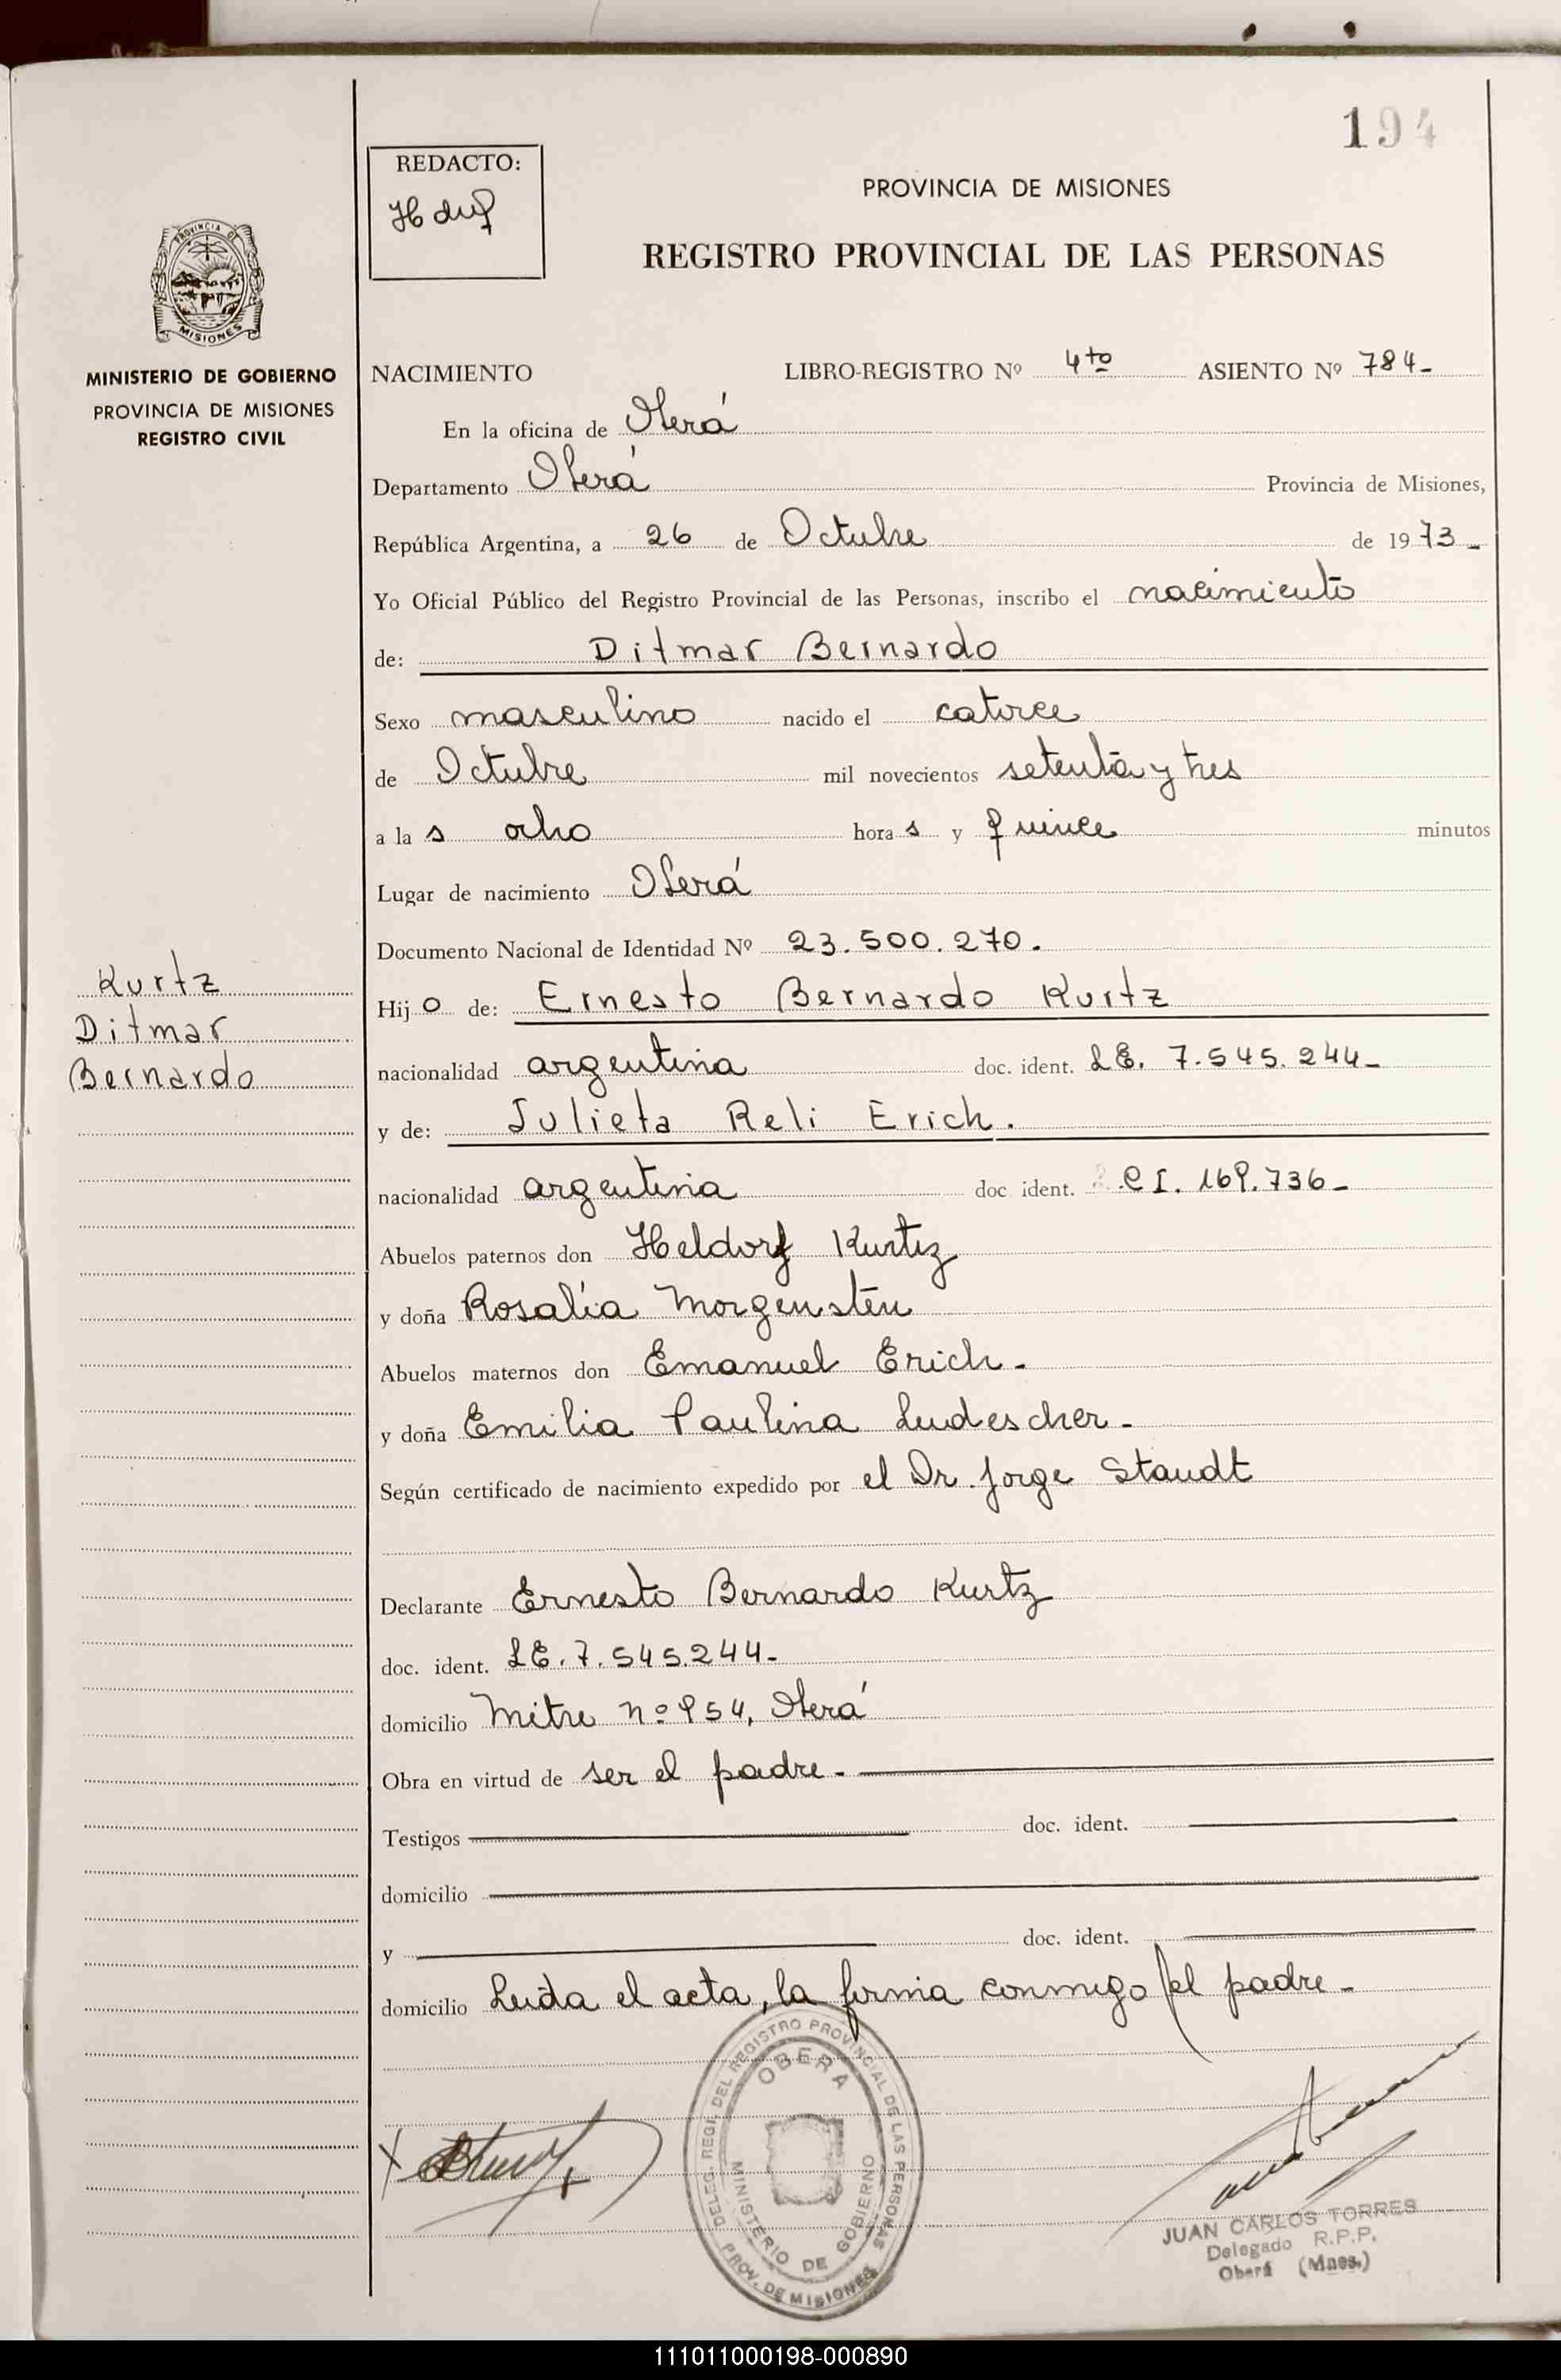 194
REDACTO:
PROVINCIA DE MISIONES
REGISTRO PROVINCIAL DE LAS PERSONAS
PROVINCIA DE
MISIONES
MINISTERIO DE GOBIERNO
PROVINCIA DE MISIONES
REGISTRO CIVIL
NACIMIENTO LIBRO-REGISTRO Nº 4to ASIENTO Nº 784-
En la oficina de Oberá
Departamento Oberá Provincia de Misiones,
República Argentina, a 26 de Octubre de 1973-
Yo Oficial Público del Registro Provincial de las Personas, inscribo el nacimiento
de: Ditmar Bernardo
Sexo masculino nacido el catorce
de Octubre mil novecientos setenta y tres
a la s ocho hora s y quince minutos
Lugar de nacimiento Oberá
Documento Nacional de Identidad Nº 23.500.270.
Kurtz
Ditmar
Bernardo
Hij o de: Ernesto Bernardo Kurtz
nacionalidad argentina doc. ident. LE. 7.545.244-
y de: Julieta Reli Erich.
nacionalidad argentina doc ident. CI. 169.736-
Abuelos paternos don Heldorf Kurtz
y doña Rosalía Morgenstern
Abuelos maternos don Emanuel Erich-
y doña Emilia Paulina Ludescher-
Según certificado de nacimiento expedido por el Dr. Jorge Staudt
Declarante Ernesto Bernardo Kurtz
doc. ident. LE. 7.545.244-
domicilio Mitre nº 954, Oberá
Obra en virtud de ser el padre-
Testigos doc. ident.
domicilio
y doc. ident.
domicilio Leída el acta, la firma conmigo el padre-
DELEG. REGI. DEL REGISTRO PROVINCIAL DE LAS PERSONAS
OBERA
MINISTERIO DE GOBIERNO
PROV. DE MISIONES
JUAN CARLOS TORRES
Delegado R.P.P.
Oberá (Mnes.)
111011000198-000890